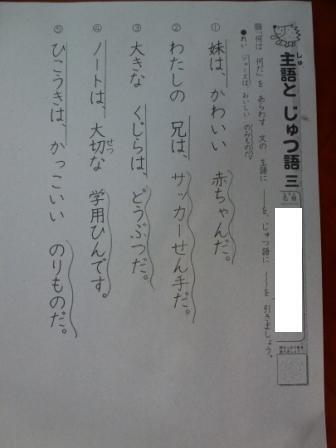 主語と じゅつ語 三
しゅ
名前
題「何は 何だ」を あらわす 文の 主語に ――を、じゅつ語に ――を 引きましょう。
●れい ジュースは おいしい のみものだ。
① 妹は、かわいい 赤ちゃんだ。
② わたしの 兄は、サッカーせん手だ。
③ 大きな くじらは、どうぶつだ。
④ ノートは、大切な 学用ひんです。
せつ
⑤ ひこうきは、かっこいい のりものだ。